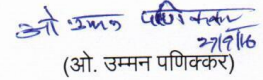 ओ उम्मन पणिक्कर
27/9/16
(ओ. उम्मन पणिक्कर)